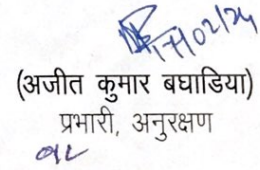 17/02/24
(अजीत कुमार बघाडिया)
प्रभारी, अनुरक्षण